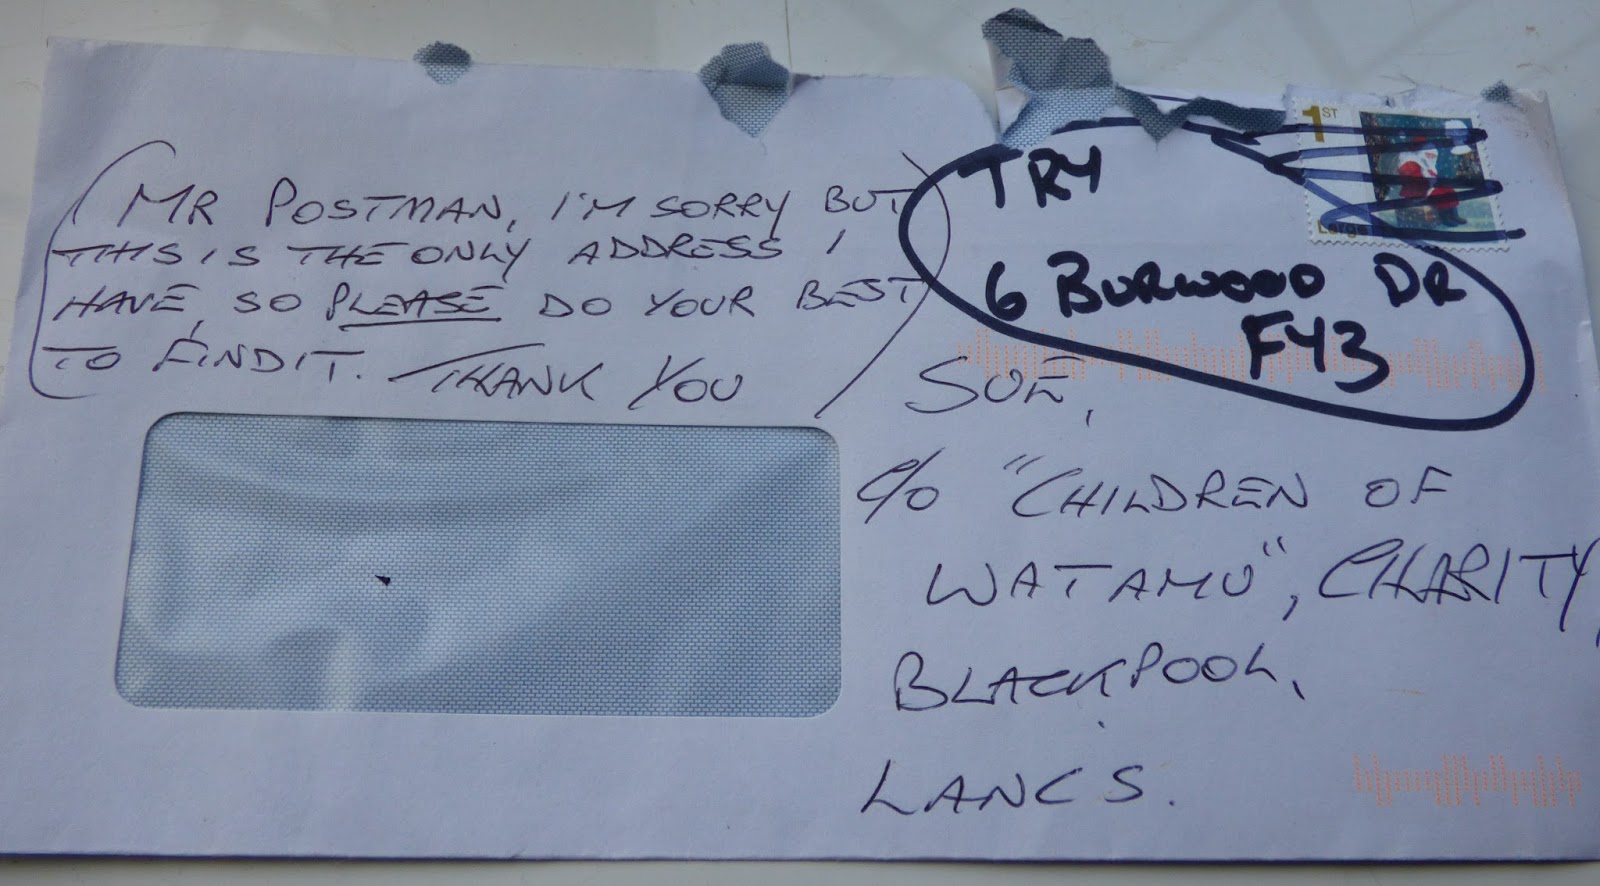 MR POSTMAN, I'M SORRY BUT
THIS IS THE ONLY ADDRESS I
HAVE, SO PLEASE DO YOUR BEST
TO FIND IT. THANK YOU
1ST
Large
TRY
6 BURWOOD DR
FY3
SUE,
c/o "CHILDREN OF
WATAMU", CHARITY,
BLACKPOOL,
LANCS.